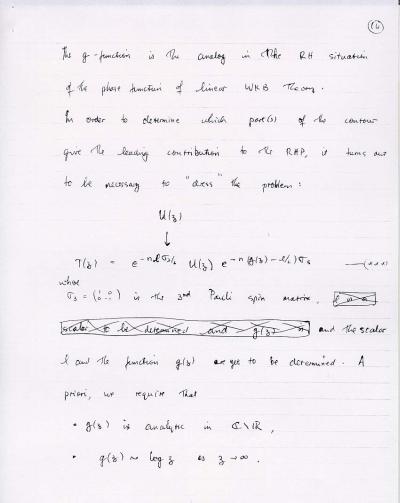 (16)
The g-function is the analog in the RH situation
of the phase function of linear WKB Theory.
In order to determine which part(s) of the contour
give the leading contribution to the RHP, it turns out
to be necessary to "dress" the problem:
U(z)
↓
T(z) = e^{-nlσ3/2} U(z) e^{-n(g(z) - l/2)σ3} —(***)
where
σ3 = (1 0; 0 -1) is the 3rd Pauli spin matrix,
scalar to be determined and g(z) is and the scalar
l and the function g(z) are yet to be determined. A
priori, we require that
• g(z) is analytic in C\R,
• g(z) ~ log z as z → ∞.